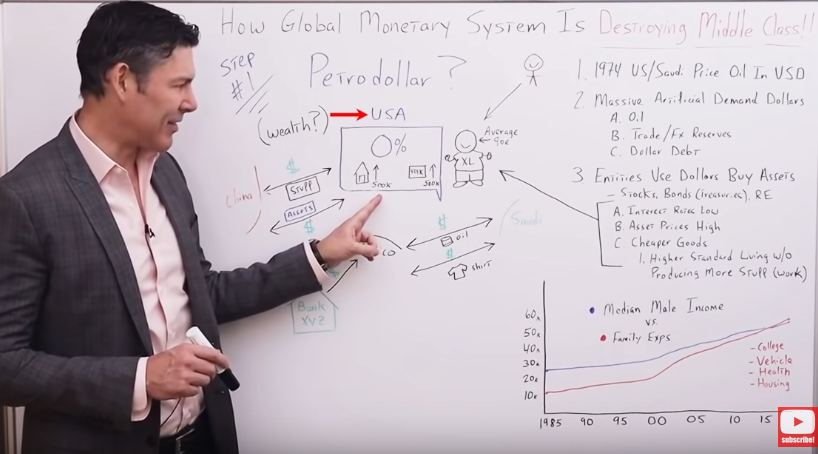 How Global Monetary System Is Destroying Middle Class!!
STEP
#1
Petrodollar?
(wealth?)
USA
0%
500K
500K
XL
Average
Joe
China
$
Stuff
Assets
$
Co
$
oil
$
shirt
Saudi
Bank
XYZ
1. 1974 US/Saudi Price Oil In USD
2. Massive Artificial Demand Dollars
A. Oil
B. Trade/Fx Reserves
C. Dollar Debt
3 Entities Use Dollars Buy Assets
- Stocks, Bonds (treasuries), RE
A. Interest Rates Low
B. Asset Prices High
C. Cheaper Goods
1. Higher Standard Living w/o
Producing More Stuff (work)
Median Male Income
vs.
Family Exps
60k
50k
40k
30k
20k
10k
- College
- Vehicle
- Health
- Housing
1985 90 95 00 05 10 15
subscribe!